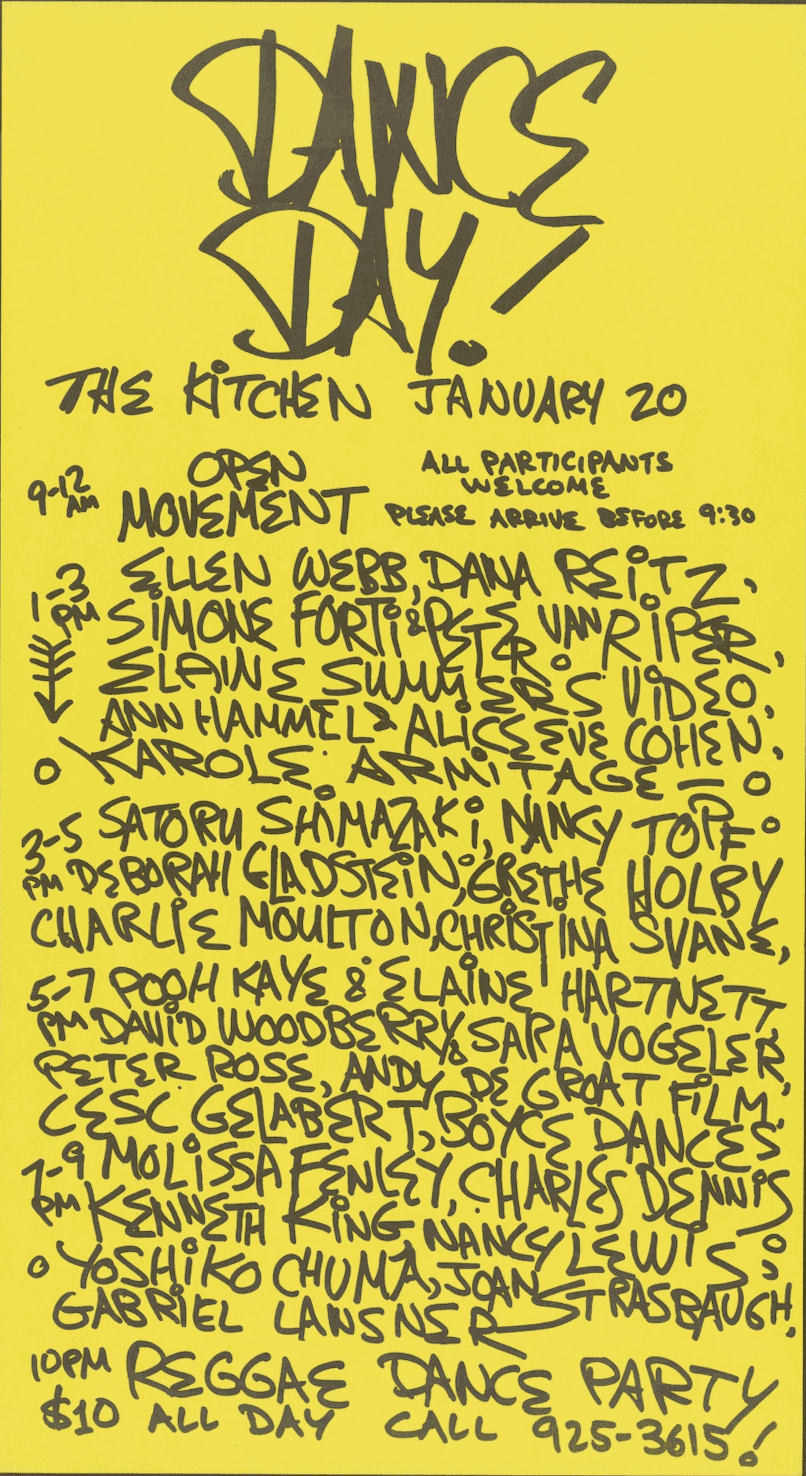 DANCE
DAY!
THE KITCHEN JANUARY 20
9-12 AM OPEN MOVEMENT ALL PARTICIPANTS WELCOME
PLEASE ARRIVE BEFORE 9:30
1-3 PM ELLEN WEBB, DANA REITZ,
SIMONE FORTI & PETER VAN RIPER,
ELAINE SUMMERS VIDEO,
ANN HAMMEL & ALICE EVE COHEN,
KAROLE ARMITAGE —
3-5 PM SATORU SHIMAZAKI, NANCY TOPF
DEBORAH GLADSTEIN, GRETHE HOLBY
CHARLIE MOULTON, CHRISTINA SVANE,
5-7 PM POOH KAYE & ELAINE HARTNETT,
DAVID WOODBERRY, & SARA VOGELER,
PETER ROSE, ANDY DE GROAT FILM,
CESC GELABERT, BOYCE DANCES
7-9 PM MOLISSA FENLEY, CHARLES DENNIS
KENNETH KING, NANCY LEWIS,
YOSHIKO CHUMA, JOAN STRASBAUGH,
GABRIEL LANSNER
10PM REGGAE DANCE PARTY
$10 ALL DAY CALL 925-3615!